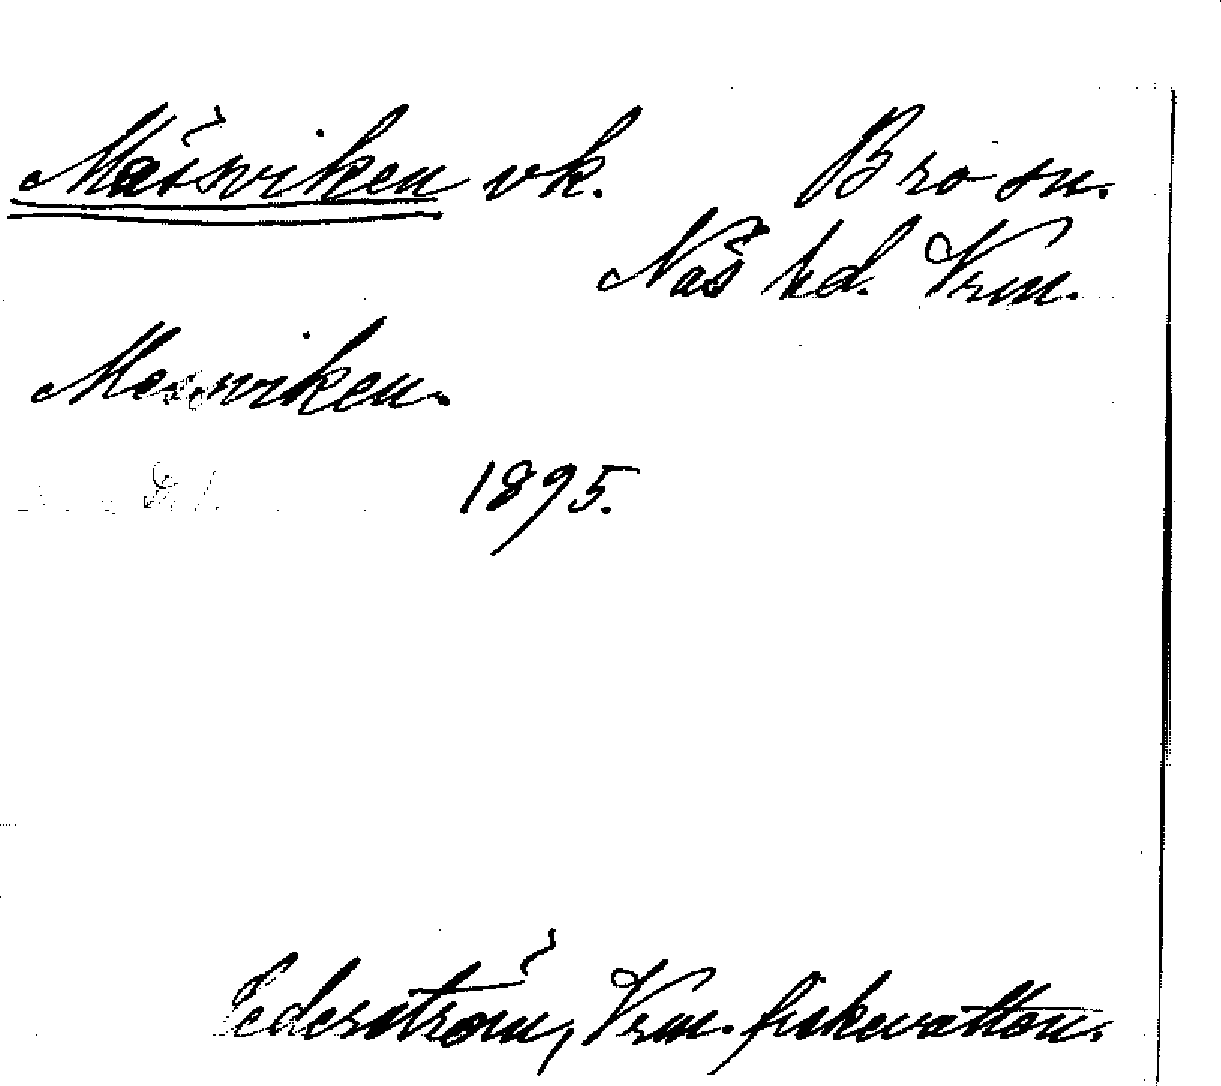 Mässviken vk. Bro sn.
Näs hd. Vrm.
Messviken.
1895.
Cederström, Vrm. fiskevatten.